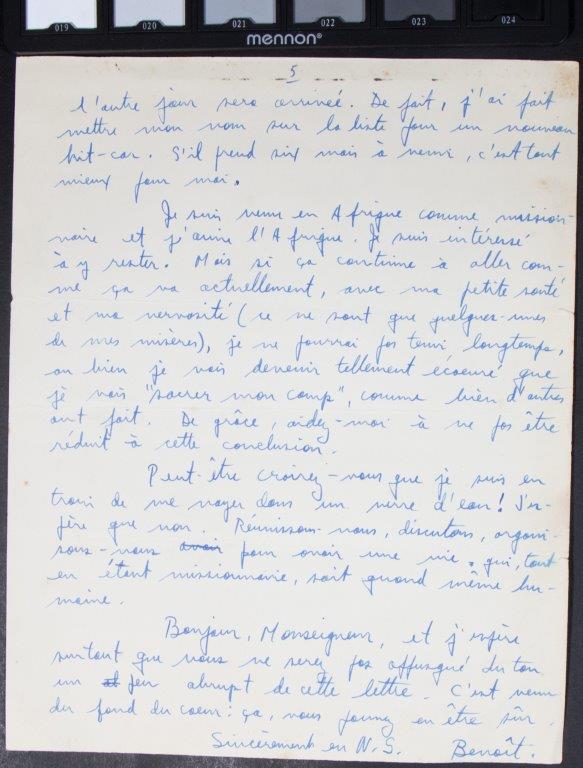 019 020 021 022 023 024
mennon®
5
l'autre jour sera arrivée. De fait, j'ai fait
mettre mon nom sur la liste pour un nouveau
kit-car. S'il prend six mois à venir, c'est tant
mieux pour moi.
Je suis venu en Afrique comme mission-
naire et j'aime l'Afrique. Je suis intéressé
à y rester. Mais si ça continue à aller com-
me ça va actuellement, avec ma petite santé
et ma nervosité (ce ne sont que quelques-unes
de mes misères), je ne pourrai pas tenir longtemps,
ou bien je vais devenir tellement écoeuré que
je vais "sacrer mon camp", comme bien d'autres
ont fait. De grâce, aidez-moi à ne pas être
réduit à cette conclusion.
Peut-être croirez-vous que je suis en
train de me noyer dans un verre d'eau! J'es-
père que non. Réunissons-nous, discutons, organi-
sons-nous avoir pour avoir une vie, qui, tout
en étant missionnaire, soit quand même hu-
maine.
Bonjour, Monseigneur, et j'espère
surtout que vous ne serez pas offusqué du ton
un peu abrupt de cette lettre. C'est venu
du fond du coeur: ça, vous pouvez en être sûr.
Sincèrement en N.S. Benoît.